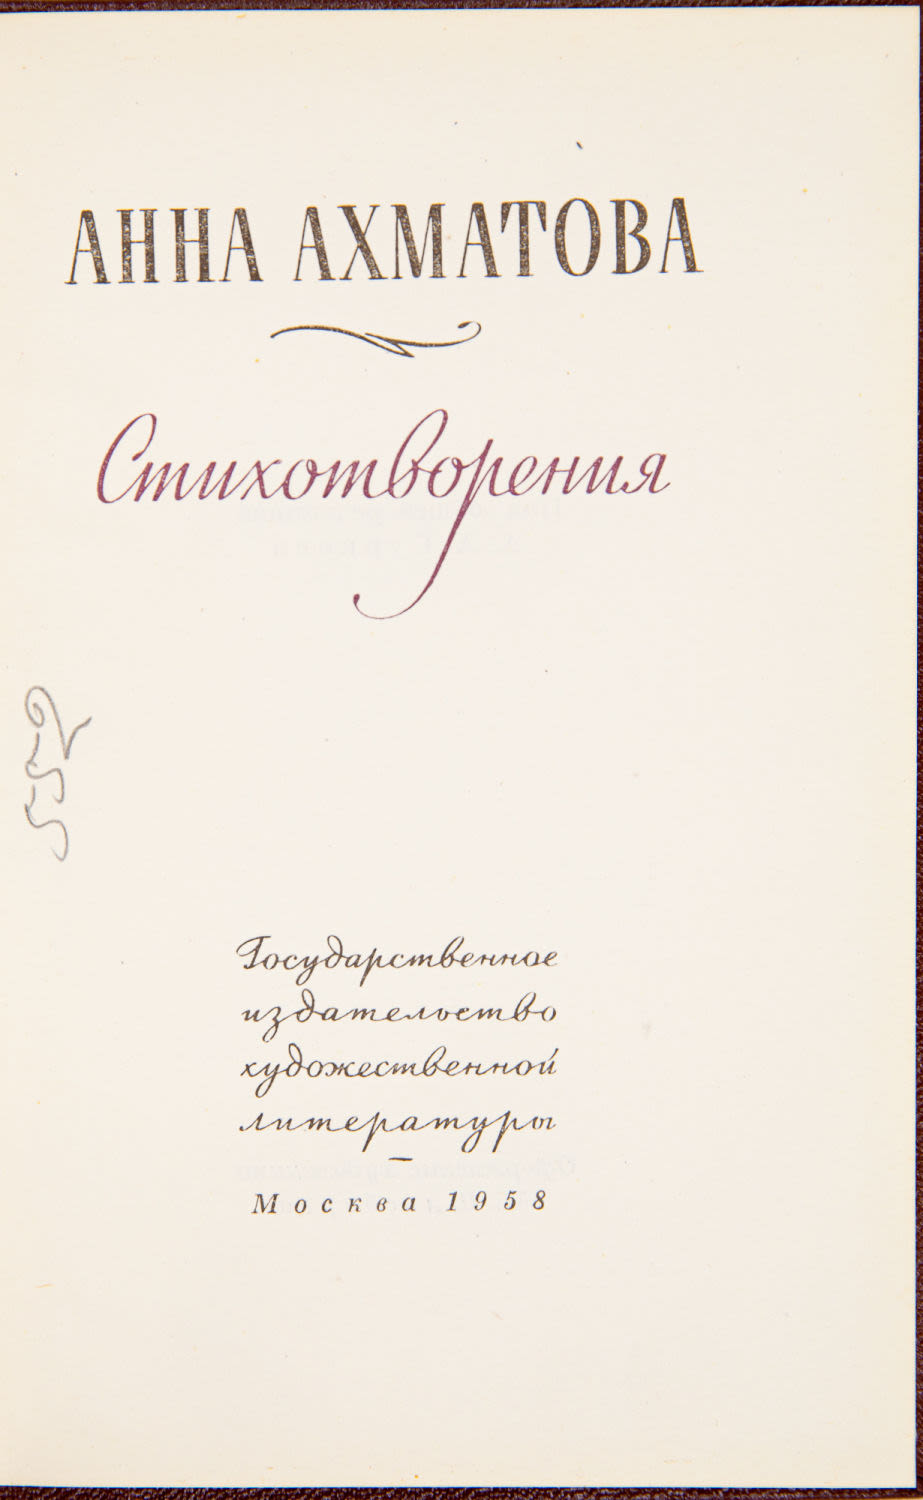 АННА АХМАТОВА
Стихотворения
552
Государственное
издательство
художественной
литературы
Москва 1958